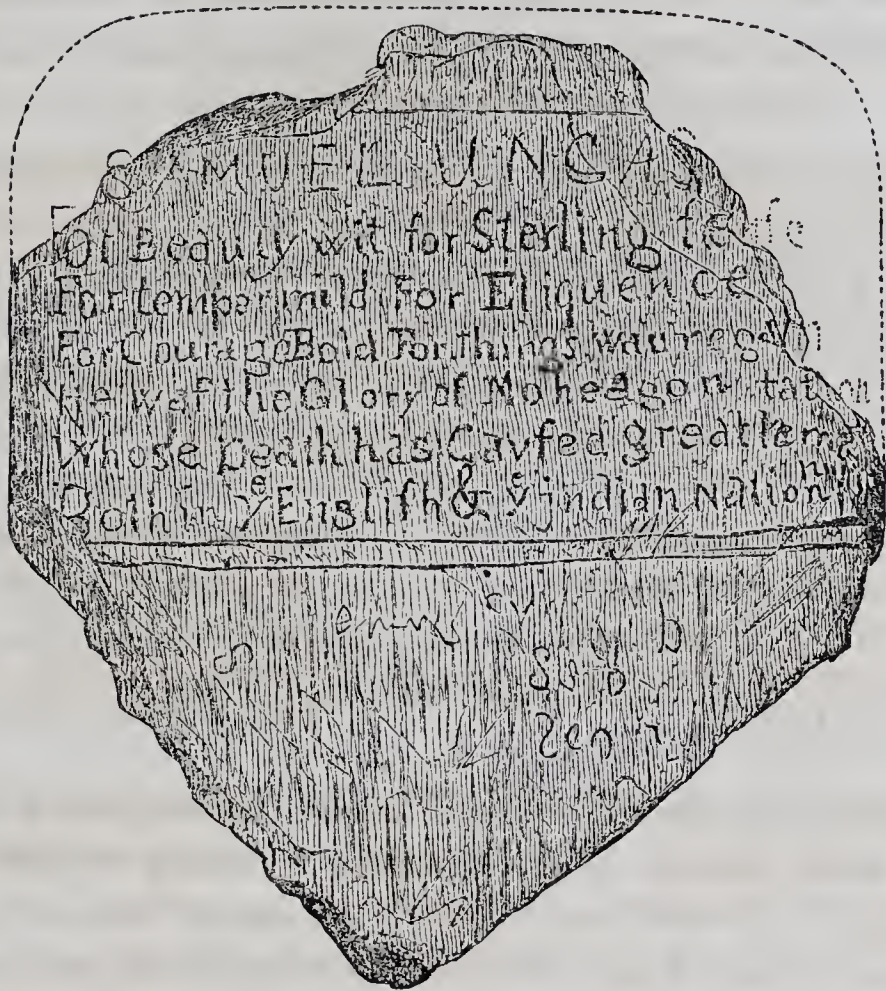 SAMUEL UNCAS
For Beauty wit for Sterling fenfe
For temper mild For Eliquence
For Courage Bold For things wauregan
He waf the Glory of Moheagon
Whose Death has Cavfed great
Both in ye Englifh & ye jndian Nation